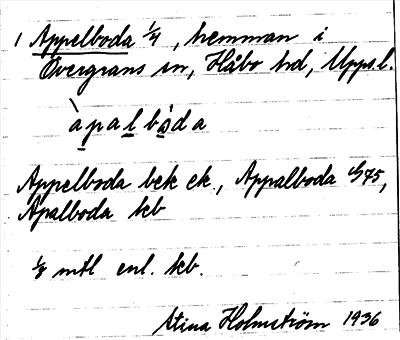 1 Appelboda 1/4, hemman i
Övergrans sn, Håbo hd, Upps.l.
àpalbòda
Appelboda bek ek., Appalboda 475,
Apalboda kb
1/8 mtl enl. kb.
Stina Holmström 1936